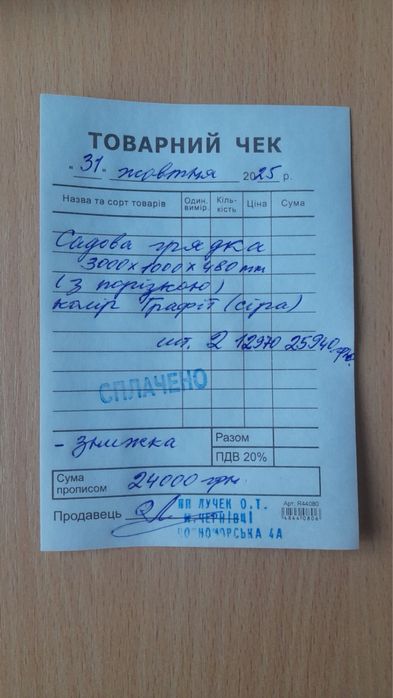 ТОВАРНИЙ ЧЕК
"31" жовтня 2025 р.
Назва та сорт товарів Один. вимір. Кіль-кість Ціна Сума
Садова грядка
3000х1000х480 mm
(з порізкою)
колір Графіт (сіра)
шт. 2 12970 25940 грн.
СПЛАЧЕНО
- знижка Разом
ПДВ 20%
Сума прописом 24000 грн.
Продавець ПП ЛУЧЕК О.Т.
м.ЧЕРНІВЦІ
ЧОРНОМОРСЬКА 4А
Арт. Я44080